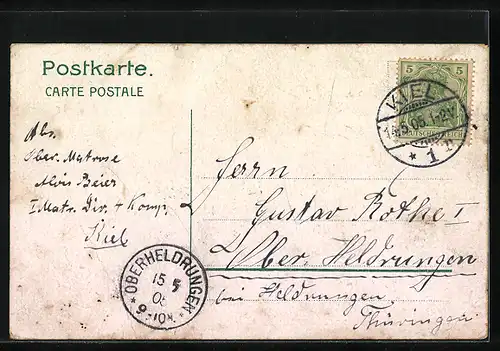 Postkarte.
CARTE POSTALE
Abs.
Ober. Matrose
Alois Beier
I Matr. Div. 4 Komp.
Kiel
5 5
DEUTSCHES REICH
KIEL
14.5.05. 1-2N
* 1
Herrn
Gustav Rothe I
Ober. Heldrungen
bei Heldrungen
Thüringen
*OBERHELDRUNGEN*
15 5
05
9-10V.